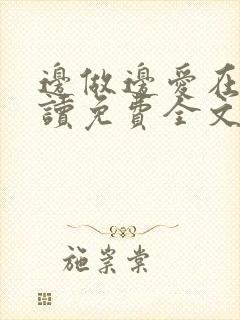 邊做邊愛在
讀免費全文
施崇棠